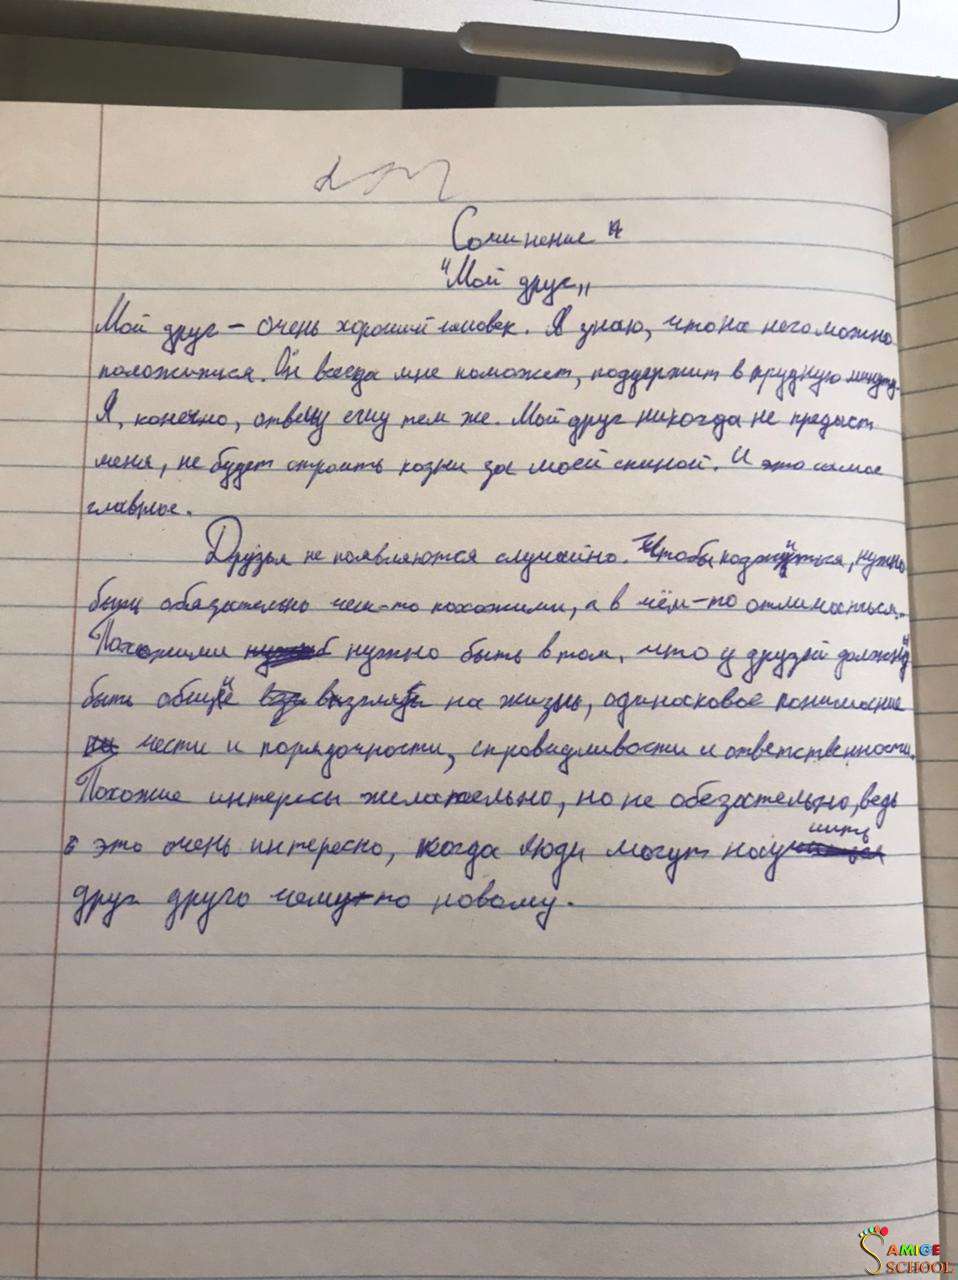 Сочинение
"Мой друг„
Мой друг – очень хороший человек. Я знаю, что на него можно
положиться. Он всегда мне поможет, поддержит в трудную минуту.
Я, конечно, отвечу ему тем же. Мой друг никогда не предаст
меня, не будет строить козни за моей спиной. И это самое
главное.
Друзья не появляются случайно. Чтобы, нужно
быть обязательно чем-то похожими, а в чём-то отличаться.
Похожими нужно быть в том, что у друзей должны
быть общие взгляды на жизнь, одинаковое понимание
чести и порядочности, справидливости и ответственности.
Похожие интересы желательно, но не обезательно, ведь
это очень интересно, когда люди могут научить
друг друга чему-то новому.
SAMIGE
SCHOOL